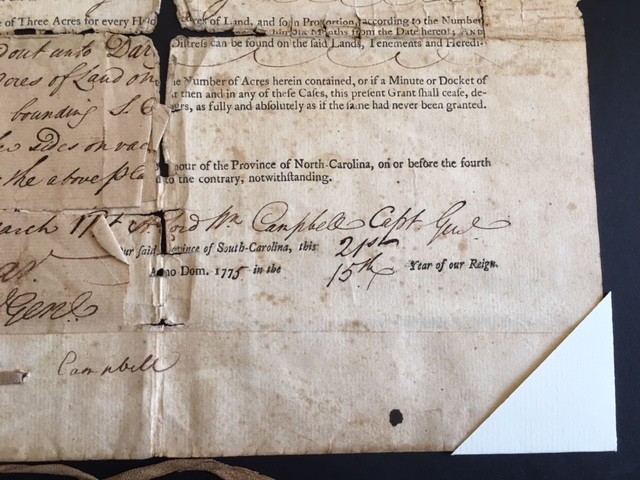 e of Three Acres for every Hun cres of Land, and so in Proportion, according to the Number
Months from the Date hereof; AND
d out unto Dar Distress can be found on the said Lands, Tenements and Heredi-
Acres of Land on he Number of Acres herein contained, or if a Minute or Docket of
bounding S. t then and in any of these Cases, this present Grant shall cease, de-
rs, as fully and absolutely as if the same had never been granted.
sides on vac
nour of the Province of North-Carolina, on or before the fourth
the above pla to the contrary, notwithstanding.
arch 17 Lord Wm Campbell Capt Genl
our said Province of South-Carolina, this 21st
Anno Dom. 1775 in the 15th Year of our Reign.
Genl.
Campbell